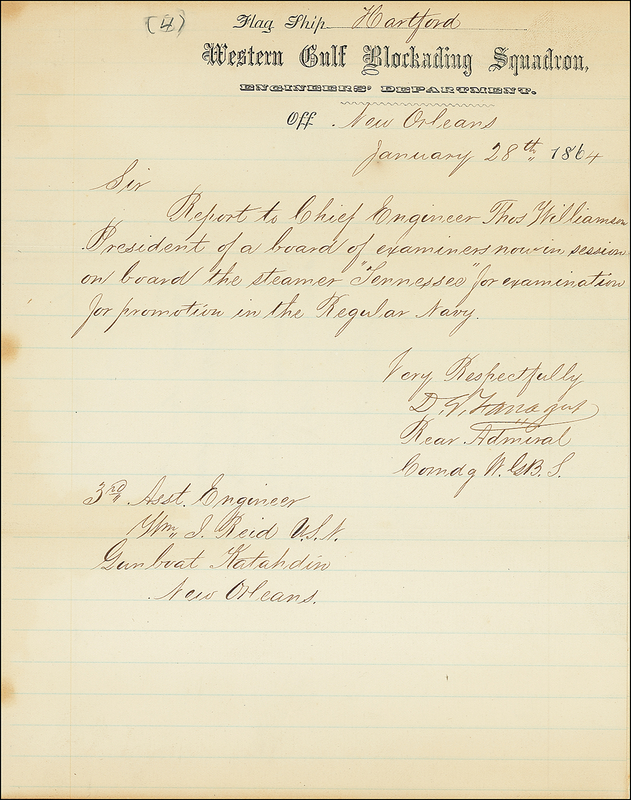 (4)
Flag Ship Hartford
Western Gulf Blockading Squadron,
ENGINEERS' DEPARTMENT.
Off New Orleans
January 28th 1864
Sir
Report to Chief Engineer Thos Williamson
President of a board of examiners now in session
on board the steamer "Tennessee" for examination
for promotion in the Regular Navy.
Very Respectfully
D. G. Farragut
Rear Admiral
Comdg W. G. B. S.
3rd Asst. Engineer
Wm. J. Reid U.S.N.
Gunboat Katahdin
New Orleans.